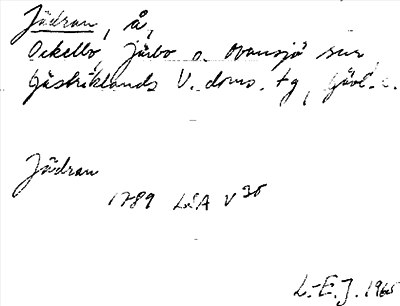 Jädran, å,
Ockelbo, Järbo o. Ovansjö snr
Gästriklands V. doms. tg, Gävl. l.
Jädran
1789 LSA V 36
L.-E. J. 1965